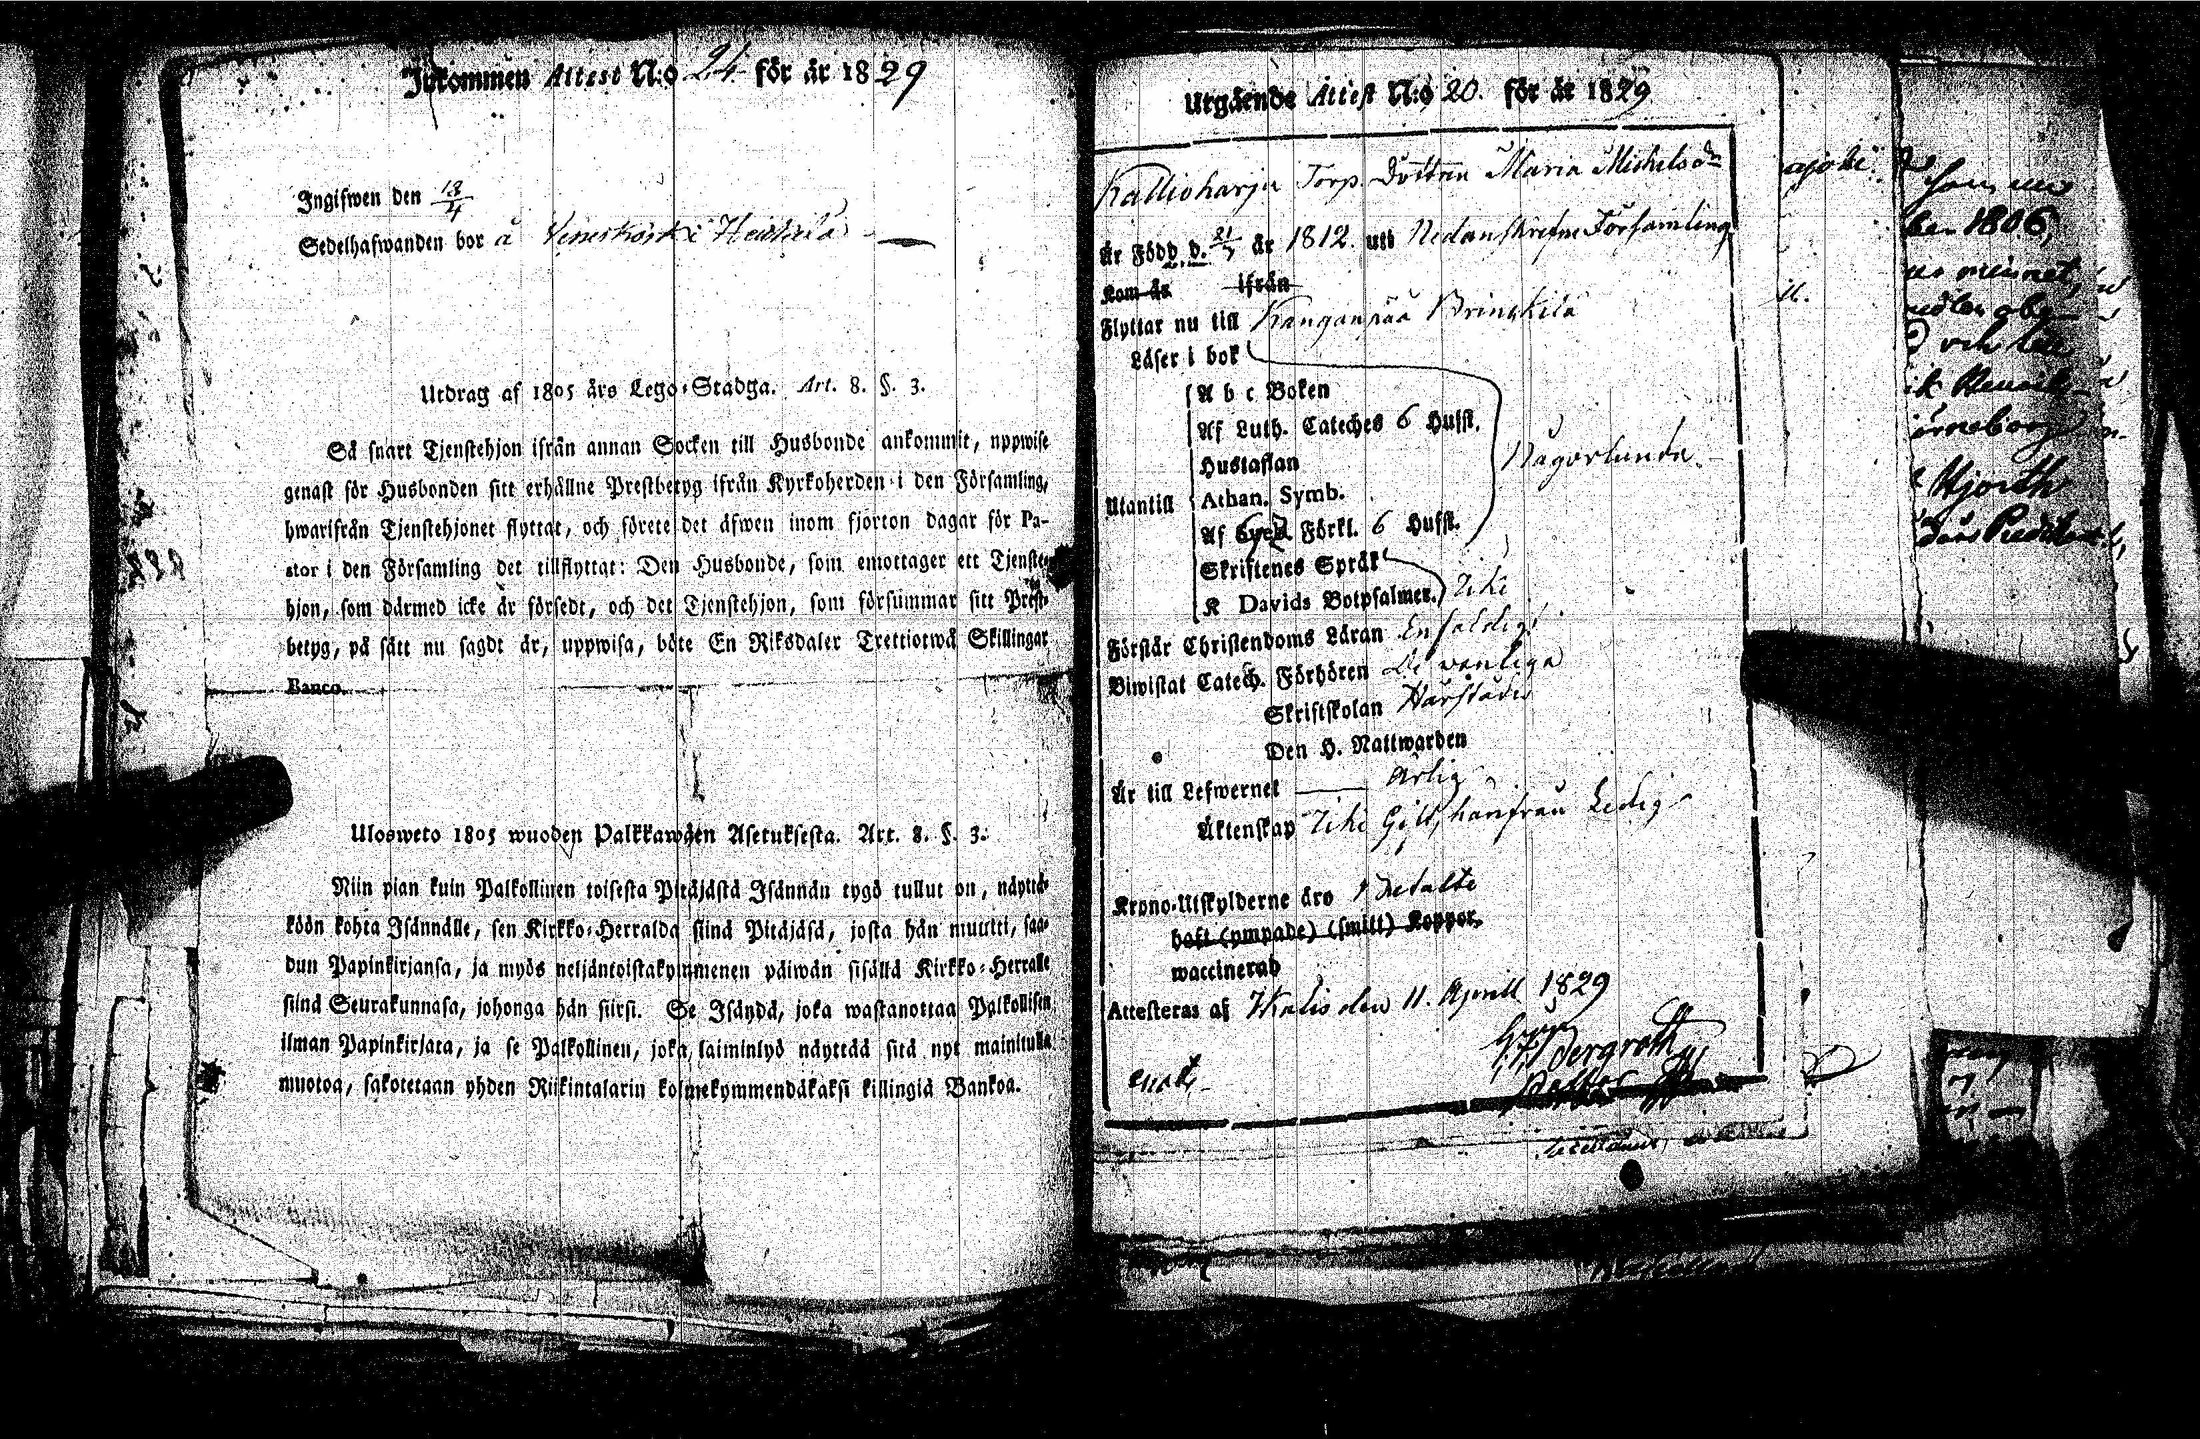 Inkommen Attest N:o 24 för år 1829
Ingifwen den 13/4
Sedelhafwanden bor å Veneskoski Heikkilä
Utdrag af 1805 års Lego-Stadga. Art. 8. §. 3.
Så snart Tjenstehjon ifrån annan Socken till Husbonde ankommit, uppwise
genast för Husbonden sitt erhållne Prestbetyg ifrån Kyrkoherden i den Församling,
hwarifrån Tjenstehjonet flyttat, och förete det äfwen inom fjorton dagar för Pa-
stor i den Församling det tillflyttat: Den Husbonde, som emottager ett Tjenste-
hjon, som därmed icke är försedt, och det Tjenstehjon, som försummar sitt Prest-
betyg, på sätt nu sagdt är, uppwisa, böte En Riksdaler Trettiotwå Skillingar
Banco.
Ulosweto 1805 wuoden Palkkawäen Asetuksesta. Art. 8. §. 3.
Niin pian kuin Palkollinen toisesta Pitäjästä Isännän tygö tullut on, näyttä-
köön kohta Isännälle, sen Kirkko-Herralda siinä Pitäjäsä, josta hän muutti, saa-
dun Papinkirjansa, ja myös neljäntoistakymmenen päiwän sisällä Kirkko-Herralle
siinä Seurakunnasa, johonga hän siirsi. Se Isändä, joka wastanottaa Palkollisen
ilman Papinkirjata, ja se Palkollinen, joka laiminlyö näyttää sitä nyt mainitulla
muotoa, sakotetaan yhden Riikintalarin kolmekymmendäkaksi killingiä Bankoa.
Utgående Attest N:o 20. för år 1829
Kallioharju Torp. Dottren Maria Michelsdr
Är Född d. 21/7 år 1812. uti Nedanskrefne Församling
Kom år ifrån
Flyttar nu till Kanganpää Brinkilä
Läser i bok
A b c Boken
Af Luth. Cateches 6 Hufst.
Hustaflan
Någorlunda.
Utantill Athan. Symb.
Af Förkl. 6 Hufst.
Skriftenes Språk
K Davids Botpsalmer. Icke
Förstår Christendoms Läran Enfaldigt
Biwistat Catech. Förhören De vanliga
Skriftskolan Härstädes
Den H. Nattwarden
Är till Lefwernet ärlig
Äktenskap Icke Gift, härifrån Ledig
Krono-Utskylderne äro Betalte
haft (ympade) (smitt) Koppor,
waccinerad
Attesteras af Ikalis den 11. Aprill 1829
Bergroth